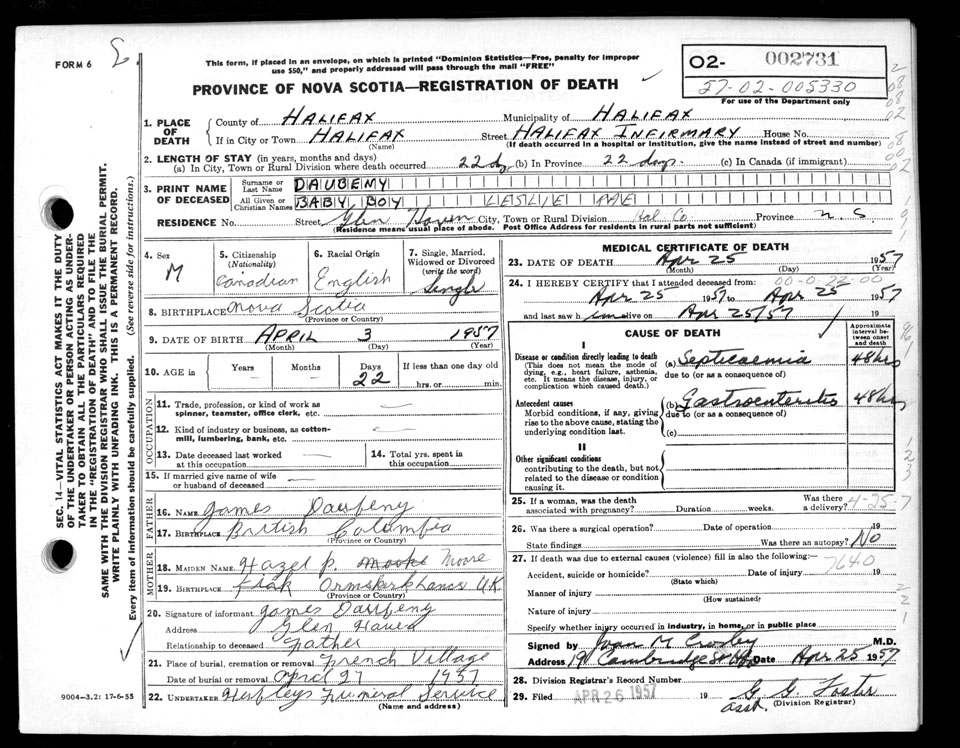 FORM 6
This form, if placed in an envelope, on which is printed "Dominion Statistics—Free, penalty for improper
use $50," and properly addressed will pass through the mail "FREE"
PROVINCE OF NOVA SCOTIA—REGISTRATION OF DEATH
O2- 002731
57-02-005330
For use of the Department only
1. PLACE OF DEATH
County of HALIFAX Municipality of HALIFAX
If in City or Town HALIFAX Street HALIFAX INFIRMARY House No.
(Name) (If death occurred in a hospital or institution, give the name instead of street and number)
2. LENGTH OF STAY (in years, months and days)
(a) In City, Town or Rural Division where death occurred 22 dy (b) In Province 22 days. (c) In Canada (if immigrant)
3. PRINT NAME OF DECEASED
Surname or Last Name DAUBENY
All Given or Christian Names BABY BOY LESLIE
RESIDENCE No. Street Glen Haven City, Town or Rural Division Hal Co Province N. S.
(Residence means usual place of abode. Post Office Address for residents in rural parts not sufficient)
4. Sex M
5. Citizenship (Nationality) Canadian
6. Racial Origin English
7. Single, Married, Widowed or Divorced (write the word) Single
8. BIRTHPLACE Nova Scotia
(Province or Country)
9. DATE OF BIRTH APRIL 3 1957
(Month) (Day) (Year)
10. AGE in Years Months Days 22 If less than one day old
hrs. or min.
OCCUPATION
11. Trade, profession, or kind of work as spinner, teamster, office clerk, etc.
12. Kind of industry or business, as cotton-mill, lumbering, bank, etc.
13. Date deceased last worked at this occupation
14. Total yrs. spent in this occupation
15. If married give name of wife or husband of deceased
FATHER
16. NAME James Daubeny
17. BIRTHPLACE British Columbia
(Province or Country)
MOTHER
18. MAIDEN NAME Hazel P. Moore
19. BIRTHPLACE Ormskirk Lancs U.K.
(Province or Country)
20. Signature of informant James Daubeny
Address Glen Haven
Relationship to deceased Father
21. Place of burial, cremation or removal French Village
Date of burial or removal April 27 1957
22. UNDERTAKER Funeral Service
(Name and address)
9004-3.2: 17-6-55
MEDICAL CERTIFICATE OF DEATH
23. DATE OF DEATH Apr 25 1957
(Month) (Day) (Year)
00-0-22-00
24. I HEREBY CERTIFY that I attended deceased from:
Apr 25 1957 to Apr 25 1957
and last saw him alive on Apr 25/57 19
CAUSE OF DEATH
Approximate interval between onset and death
I
Disease or condition directly leading to death
(This does not mean the mode of dying, e.g., heart failure, asthenia, etc. It means the disease, injury, or complication which caused death.)
(a) Septicaemia 48 hrs
due to (or as a consequence of)
Antecedent causes
Morbid conditions, if any, giving rise to the above cause, stating the underlying condition last.
(b) Gastroenteritis 48 hrs
due to (or as a consequence of)
(c)
II
Other significant conditions
contributing to the death, but not related to the disease or condition causing it.
25. If a woman, was the death associated with pregnancy? Duration weeks. Was there a delivery? 4-25-7
26. Was there a surgical operation? Date of operation 19
State findings Was there an autopsy? No
27. If death was due to external causes (violence) fill in also the following:—
7640
Accident, suicide or homicide? Date of injury 19
(State which)
Manner of injury
(How sustained)
Nature of injury
Specify whether injury occurred in industry, in home, or in public place
Signed by Joan M Crosby M.D.
Address 191 Cambridge St Hfx Date Apr 25 1957
28. Division Registrar's Record Number
29. Filed APR 26 1957 19 G. G. Foster
asst. (Division Registrar)
SEC. 14—VITAL STATISTICS ACT MAKES IT THE DUTY
OF THE UNDERTAKER OR PERSON ACTING AS UNDER-
TAKER TO OBTAIN ALL THE PARTICULARS REQUIRED
IN THE "REGISTRATION OF DEATH" AND TO FILE THE
SAME WITH THE DIVISION REGISTRAR WHO SHALL ISSUE THE BURIAL PERMIT.
WRITE PLAINLY WITH UNFADING INK. THIS IS A PERMANENT RECORD.
Every item of information should be carefully supplied. (See reverse side for instructions.)